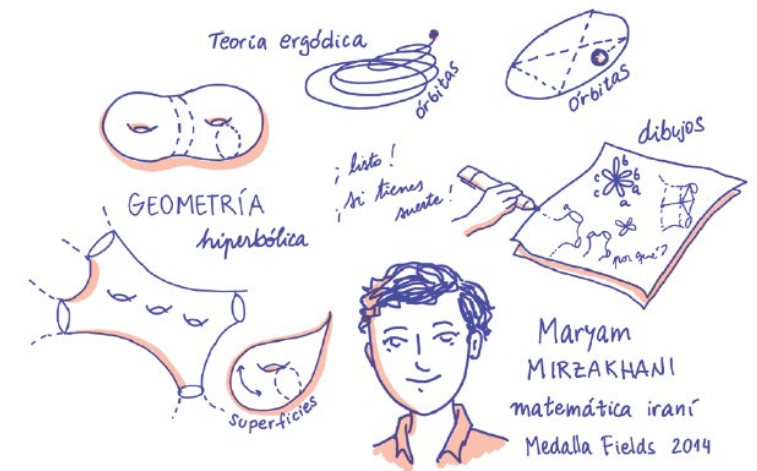 Teoría ergódica
órbitas
órbitas
dibujos
¡listo!
¡si tienes
suerte!
b
c b
c a
a
a
a
por qué?
GEOMETRÍA
hiperbólica
superficies
Maryam
MIRZAKHANI
matemática iraní
Medalla Fields 2014